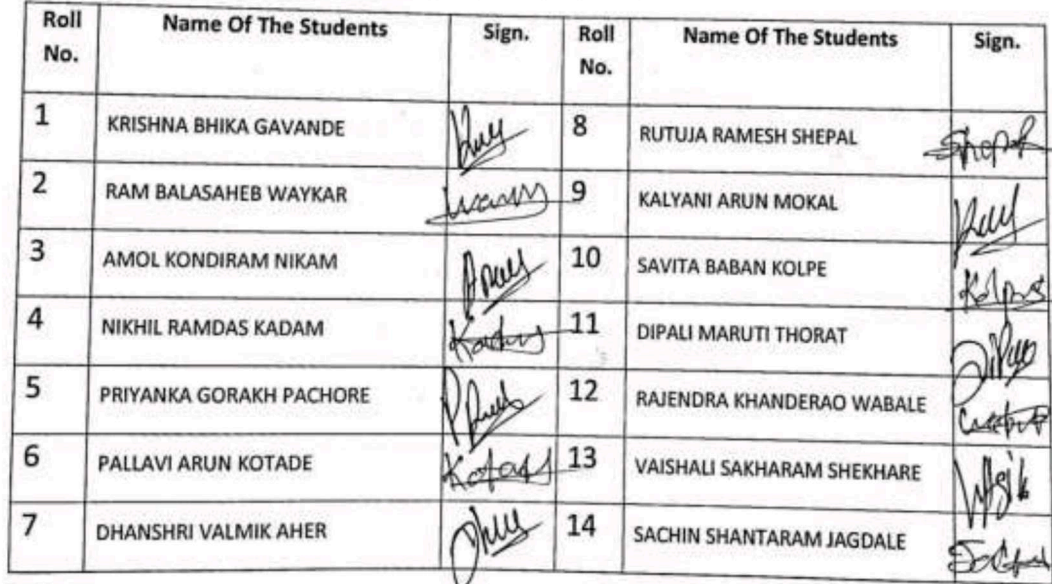 Roll No. Name Of The Students Sign. Roll No. Name Of The Students Sign.
1 KRISHNA BHIKA GAVANDE 8 RUTUJA RAMESH SHEPAL
2 RAM BALASAHEB WAYKAR 9 KALYANI ARUN MOKAL
3 AMOL KONDIRAM NIKAM 10 SAVITA BABAN KOLPE
4 NIKHIL RAMDAS KADAM 11 DIPALI MARUTI THORAT
5 PRIYANKA GORAKH PACHORE 12 RAJENDRA KHANDERAO WABALE
6 PALLAVI ARUN KOTADE 13 VAISHALI SAKHARAM SHEKHARE
7 DHANSHRI VALMIK AHER 14 SACHIN SHANTARAM JAGDALE